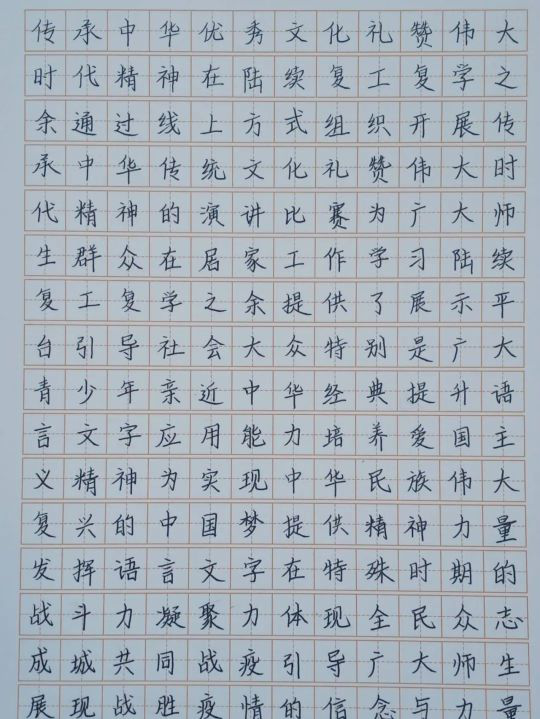 传承中华优秀文化礼赞伟大
时代精神在陆续复工复学之
余通过线上方式组织开展传
承中华传统文化礼赞伟大时
代精神的演讲比赛为广大师
生群众在居家工作学习陆续
复工复学之余提供了展示平
台引导社会大众特别是广大
青少年亲近中华经典提升语
言文字应用能力培养爱国主
义精神为实现中华民族伟大
复兴的中国梦提供精神力量
发挥语言文字在特殊时期的
战斗力凝聚力体现全民众志
成城共同战疫引导广大师生
展现战胜疫情的信念与力量